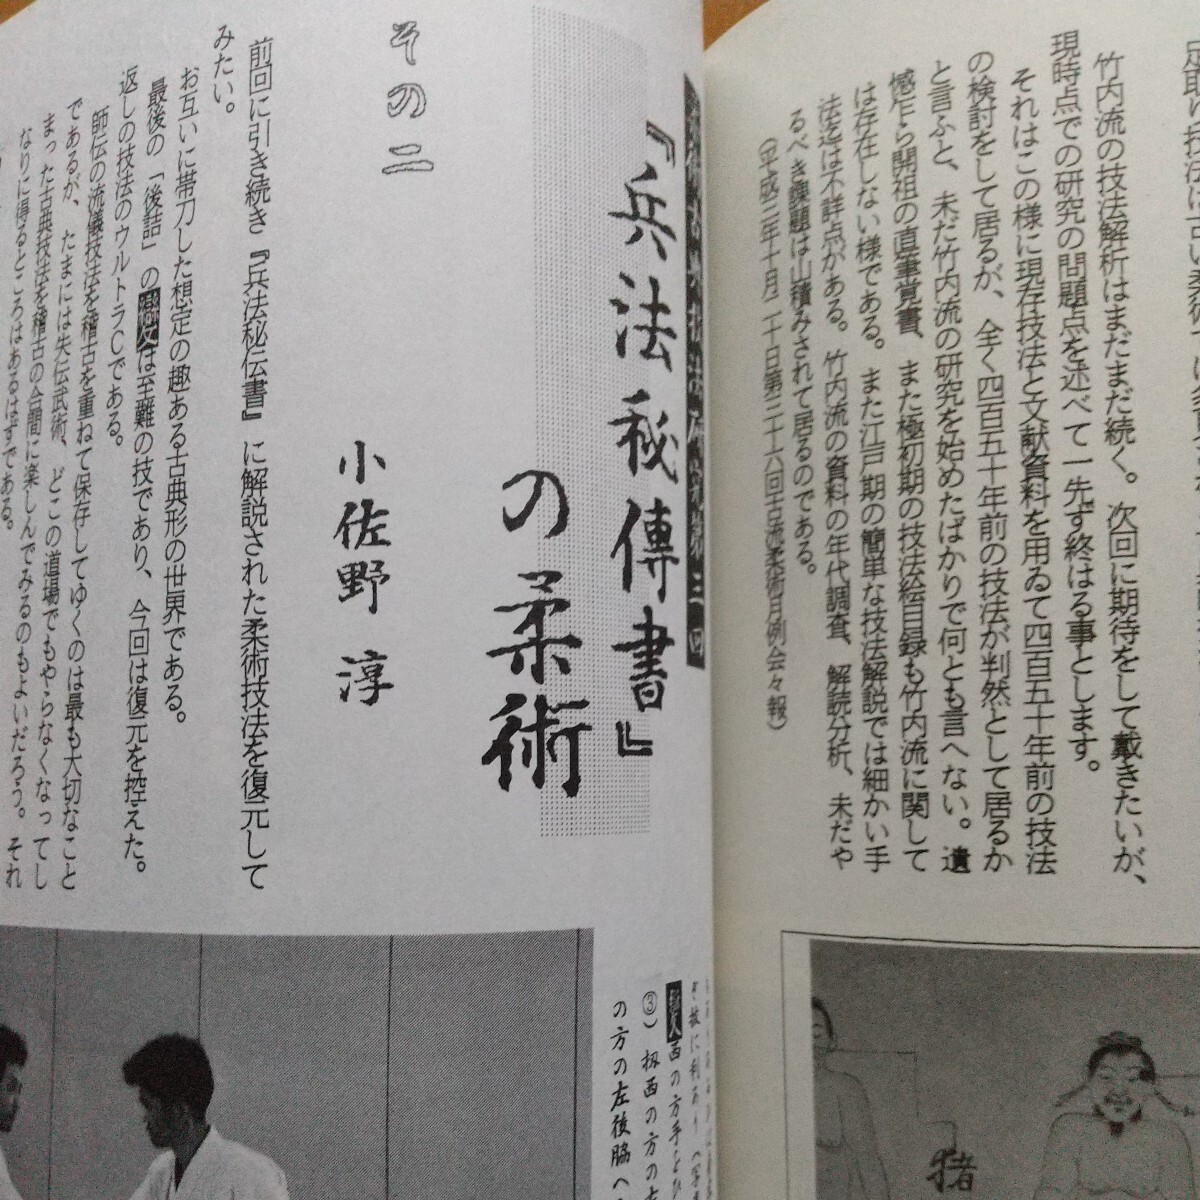 竹内流の技法解析はまだまだ続く。次回に期待をして戴きたいが、
現時点での研究の問題点を述べて一先ず終はる事とします。
それはこの様に現存技法と文献資料を用ゐて四百五十年前の技法
の検討をして居るが、全く四百五十年前の技法が判然として居るか
と言ふと、未だ竹内流の研究を始めたばかりで何とも言へない。遺
憾乍ら開祖の直筆覚書、また極初期の技法絵目録も竹内流に関して
は存在しない様である。また江戸期の簡単な技法解説では細かい手
法迄は不詳点がある。竹内流の資料の年代調査、解読分析、未だや
るべき課題は山積みされて居るのである。
(平成二年十月二十日第三十六回古流柔術月例会々報)
猪
『兵法秘傳書』
の柔術
その二
小佐野 淳
前回に引き続き『兵法秘伝書』に解説された柔術技法を復元して
みたい。
お互いに帯刀した想定の趣ある古典形の世界である。
最後の「後詰」の變は至難の技であり、今回は復元を控えた。
返しの技法のウルトラCである。
師伝の流儀技法を稽古を重ねて保存してゆくのは最も大切なこと
であるが、たまには失伝武術、どこの道場でもやらなくなってし
まった古典技法を稽古の合間に楽しんでみるのもよいだろう。それ
なりに得るところはあるはずである。
の方の左後脇へ